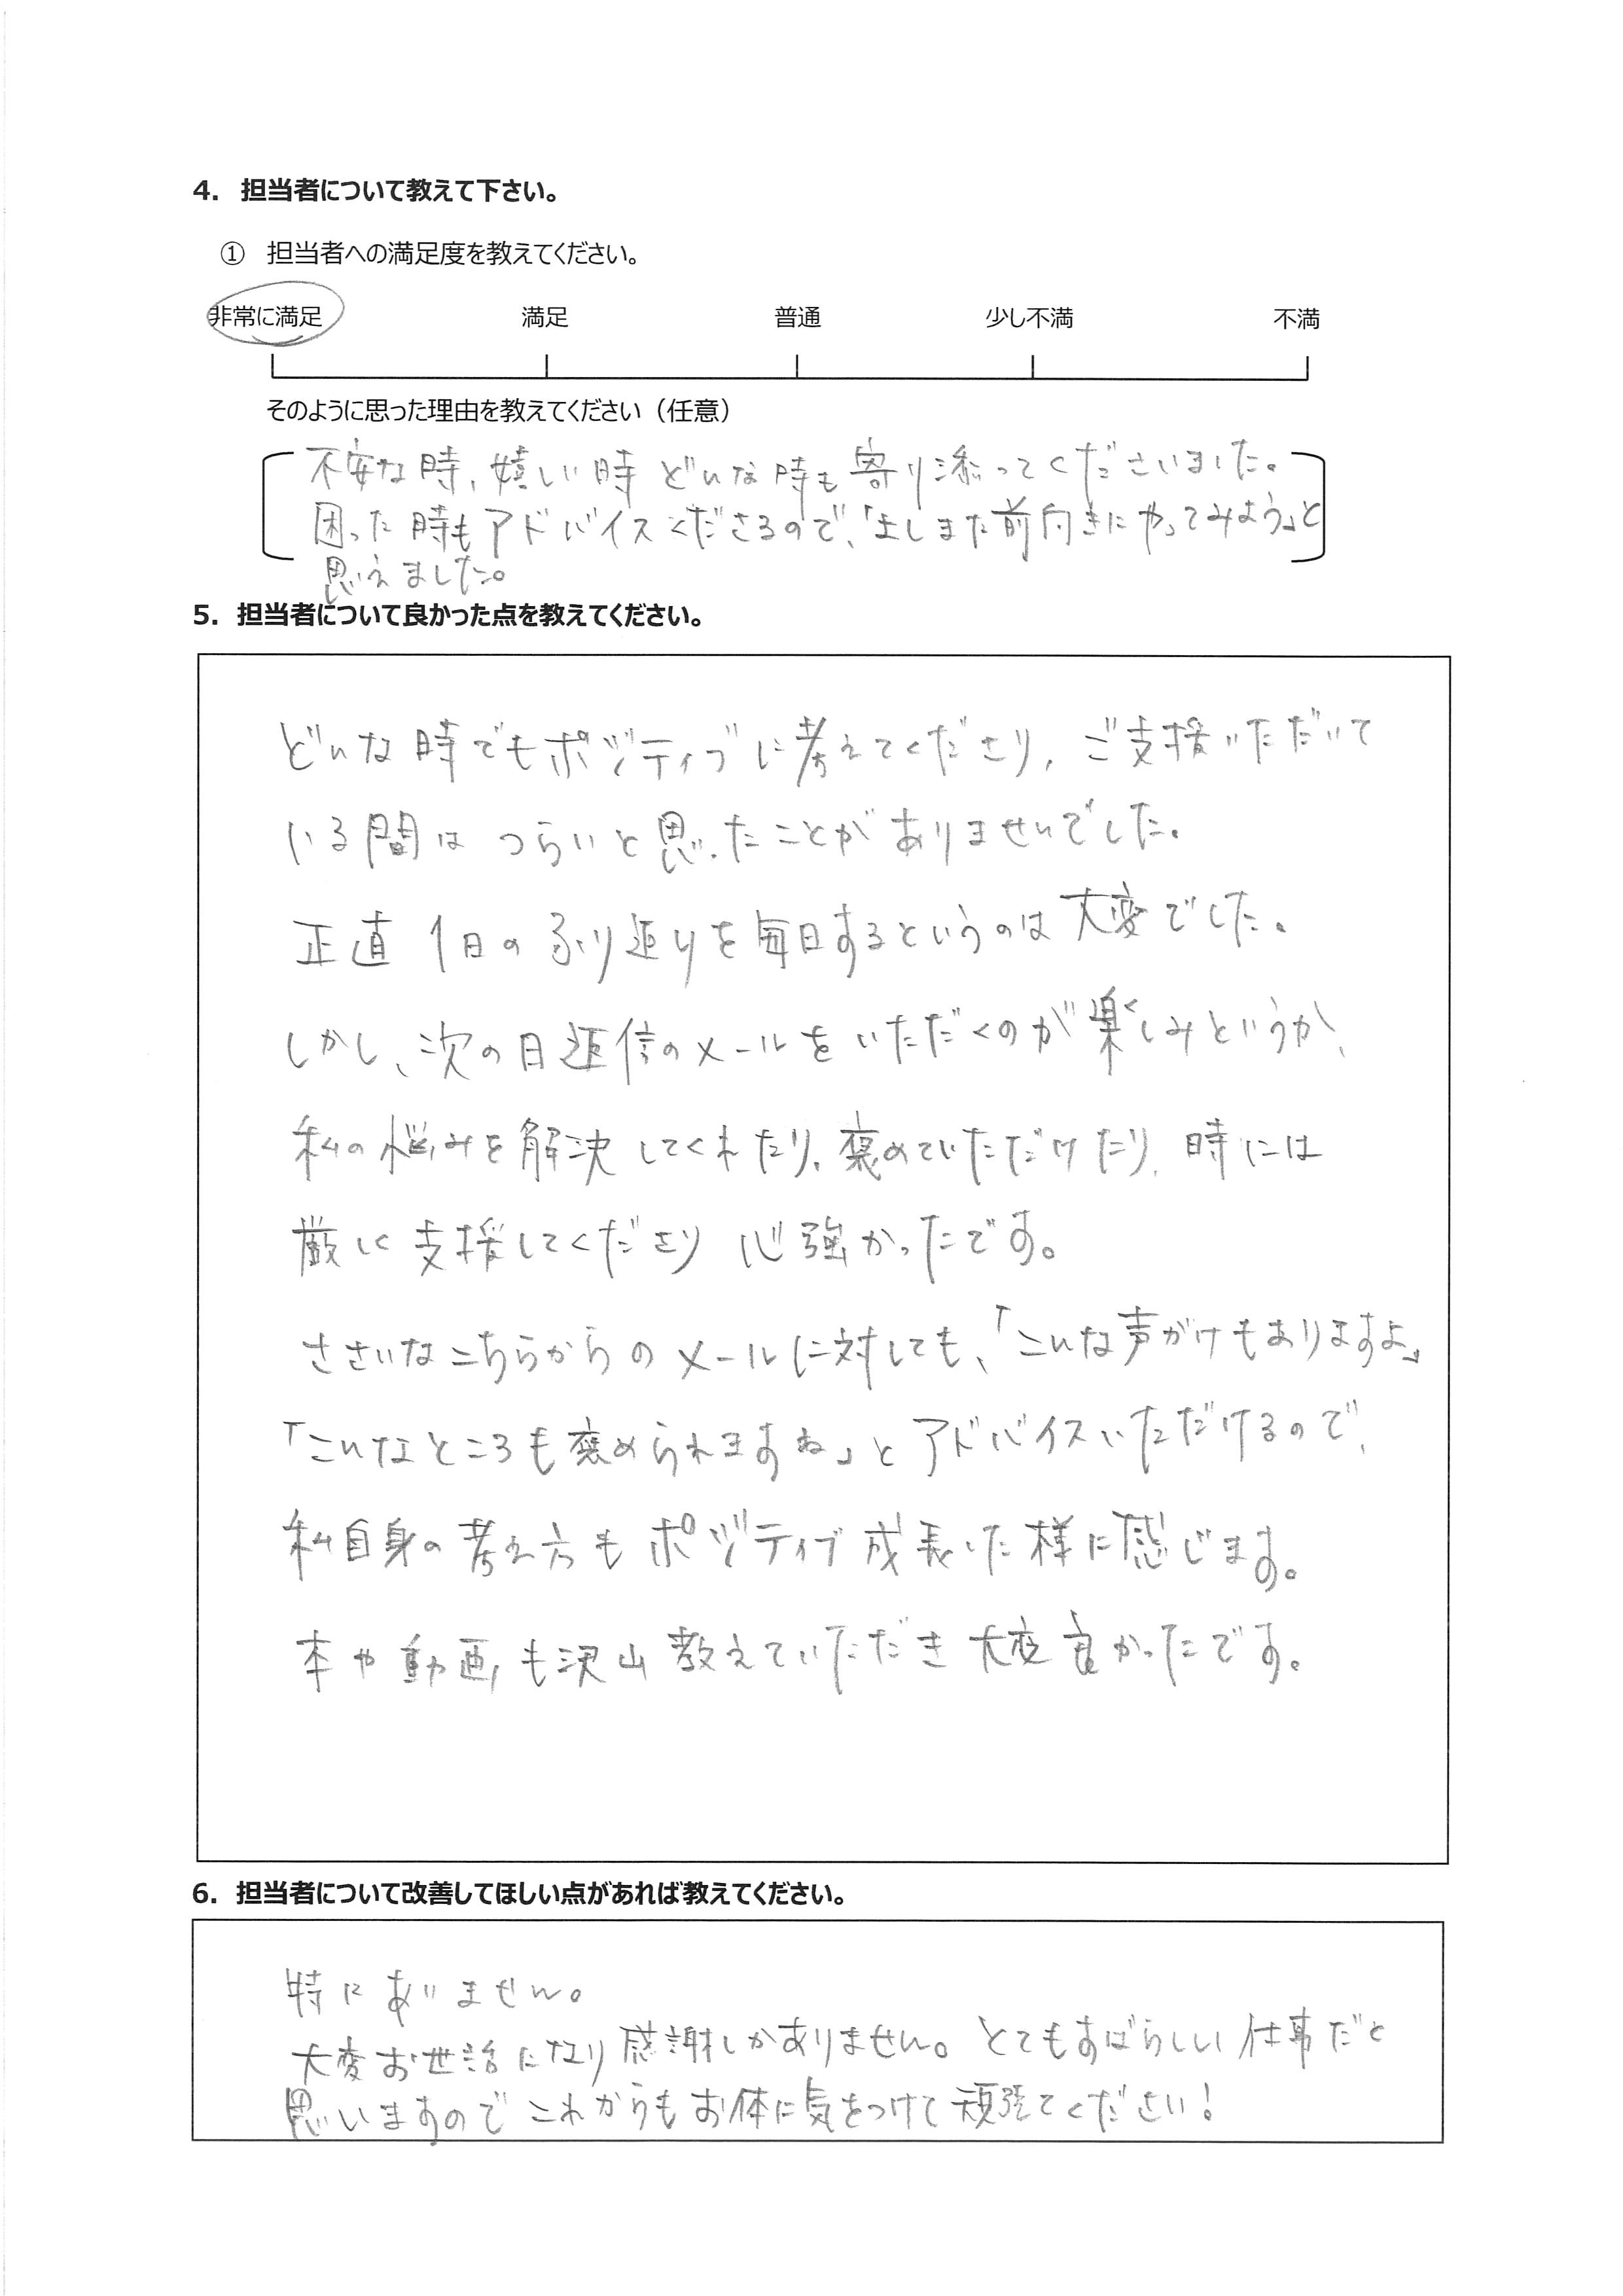 4. 担当者について教えて下さい。
① 担当者への満足度を教えてください。
非常に満足 満足 普通 少し不満 不満
そのように思った理由を教えてください（任意）
不安な時、嬉しい時 どんな時も寄り添ってくださいました。
困った時もアドバイスくださるので、「よしまた前向きにやってみよう」と
思えました。
5. 担当者について良かった点を教えてください。
どんな時でもポジティブに考えてくださり、ご支援いただいて
いる間は つらいと思ったことがありませんでした。
正直 1日のふり返りを毎日するというのは大変でした。
しかし、次の日返信のメールをいただくのが楽しみというか、
私の悩みを解決してくれたり、褒めていただけたり、時には
厳しく支援してくださり 心強かったです。
ささいなこちらからのメールに対しても、「こんな声がけもありますよ」
「こんなところも褒められますね」とアドバイスいただけるので、
私自身の考え方もポジティブ成長した様に感じます。
本や動画も沢山教えていただき大変良かったです。
6. 担当者について改善してほしい点があれば教えてください。
特にありません。
大変お世話になり感謝しかありません。とてもすばらしい仕事だと
思いますのでこれからもお体に気をつけて頑張てください!